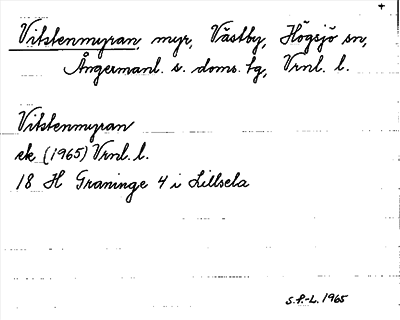 +
Vitstenmyran myr, Västby, Högsjö sn,
Ångermanl. s. doms. tg, Vrnl. l.
Vitstenmyran
ek (1965) Vrnl. l.
18 H Graninge 4 i Lillsela
S.P.-L. 1965